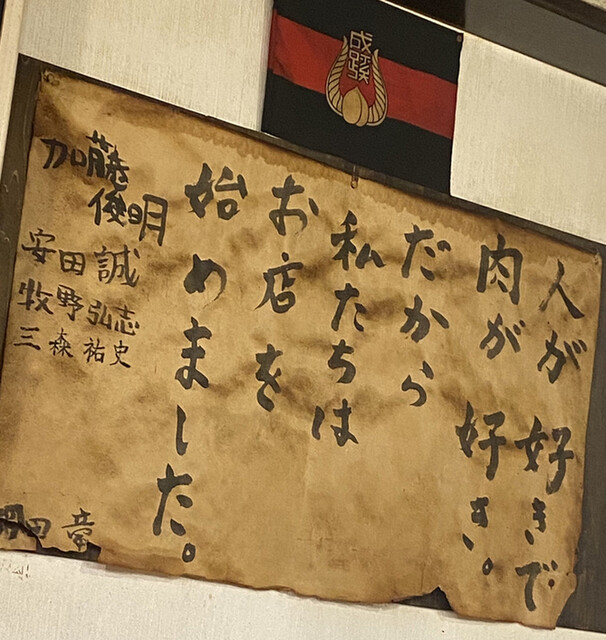 成蹊
人が好きで
肉が好き。
だから
私たちは
お店を
始めました。
加藤俊明
安田誠
牧野弘志
三森祐史
田竜